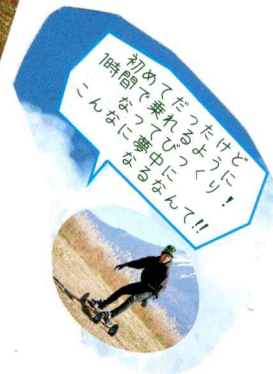 初めてだったけど
1時間で乗れるように
なってびっくり！
こんなに夢中に
なるなんて!!